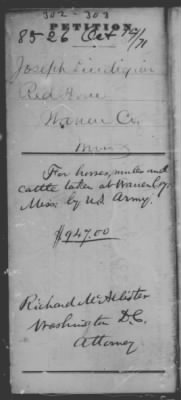 302-303
PETITION.
8526 Oct 14/70
Joseph
Warren Co.
Miss
For horses, mules and
cattle taken at Warren Co.
Miss by U.S. Army.
$947.00
Richard McAllister
Washington D.C.
Attorney